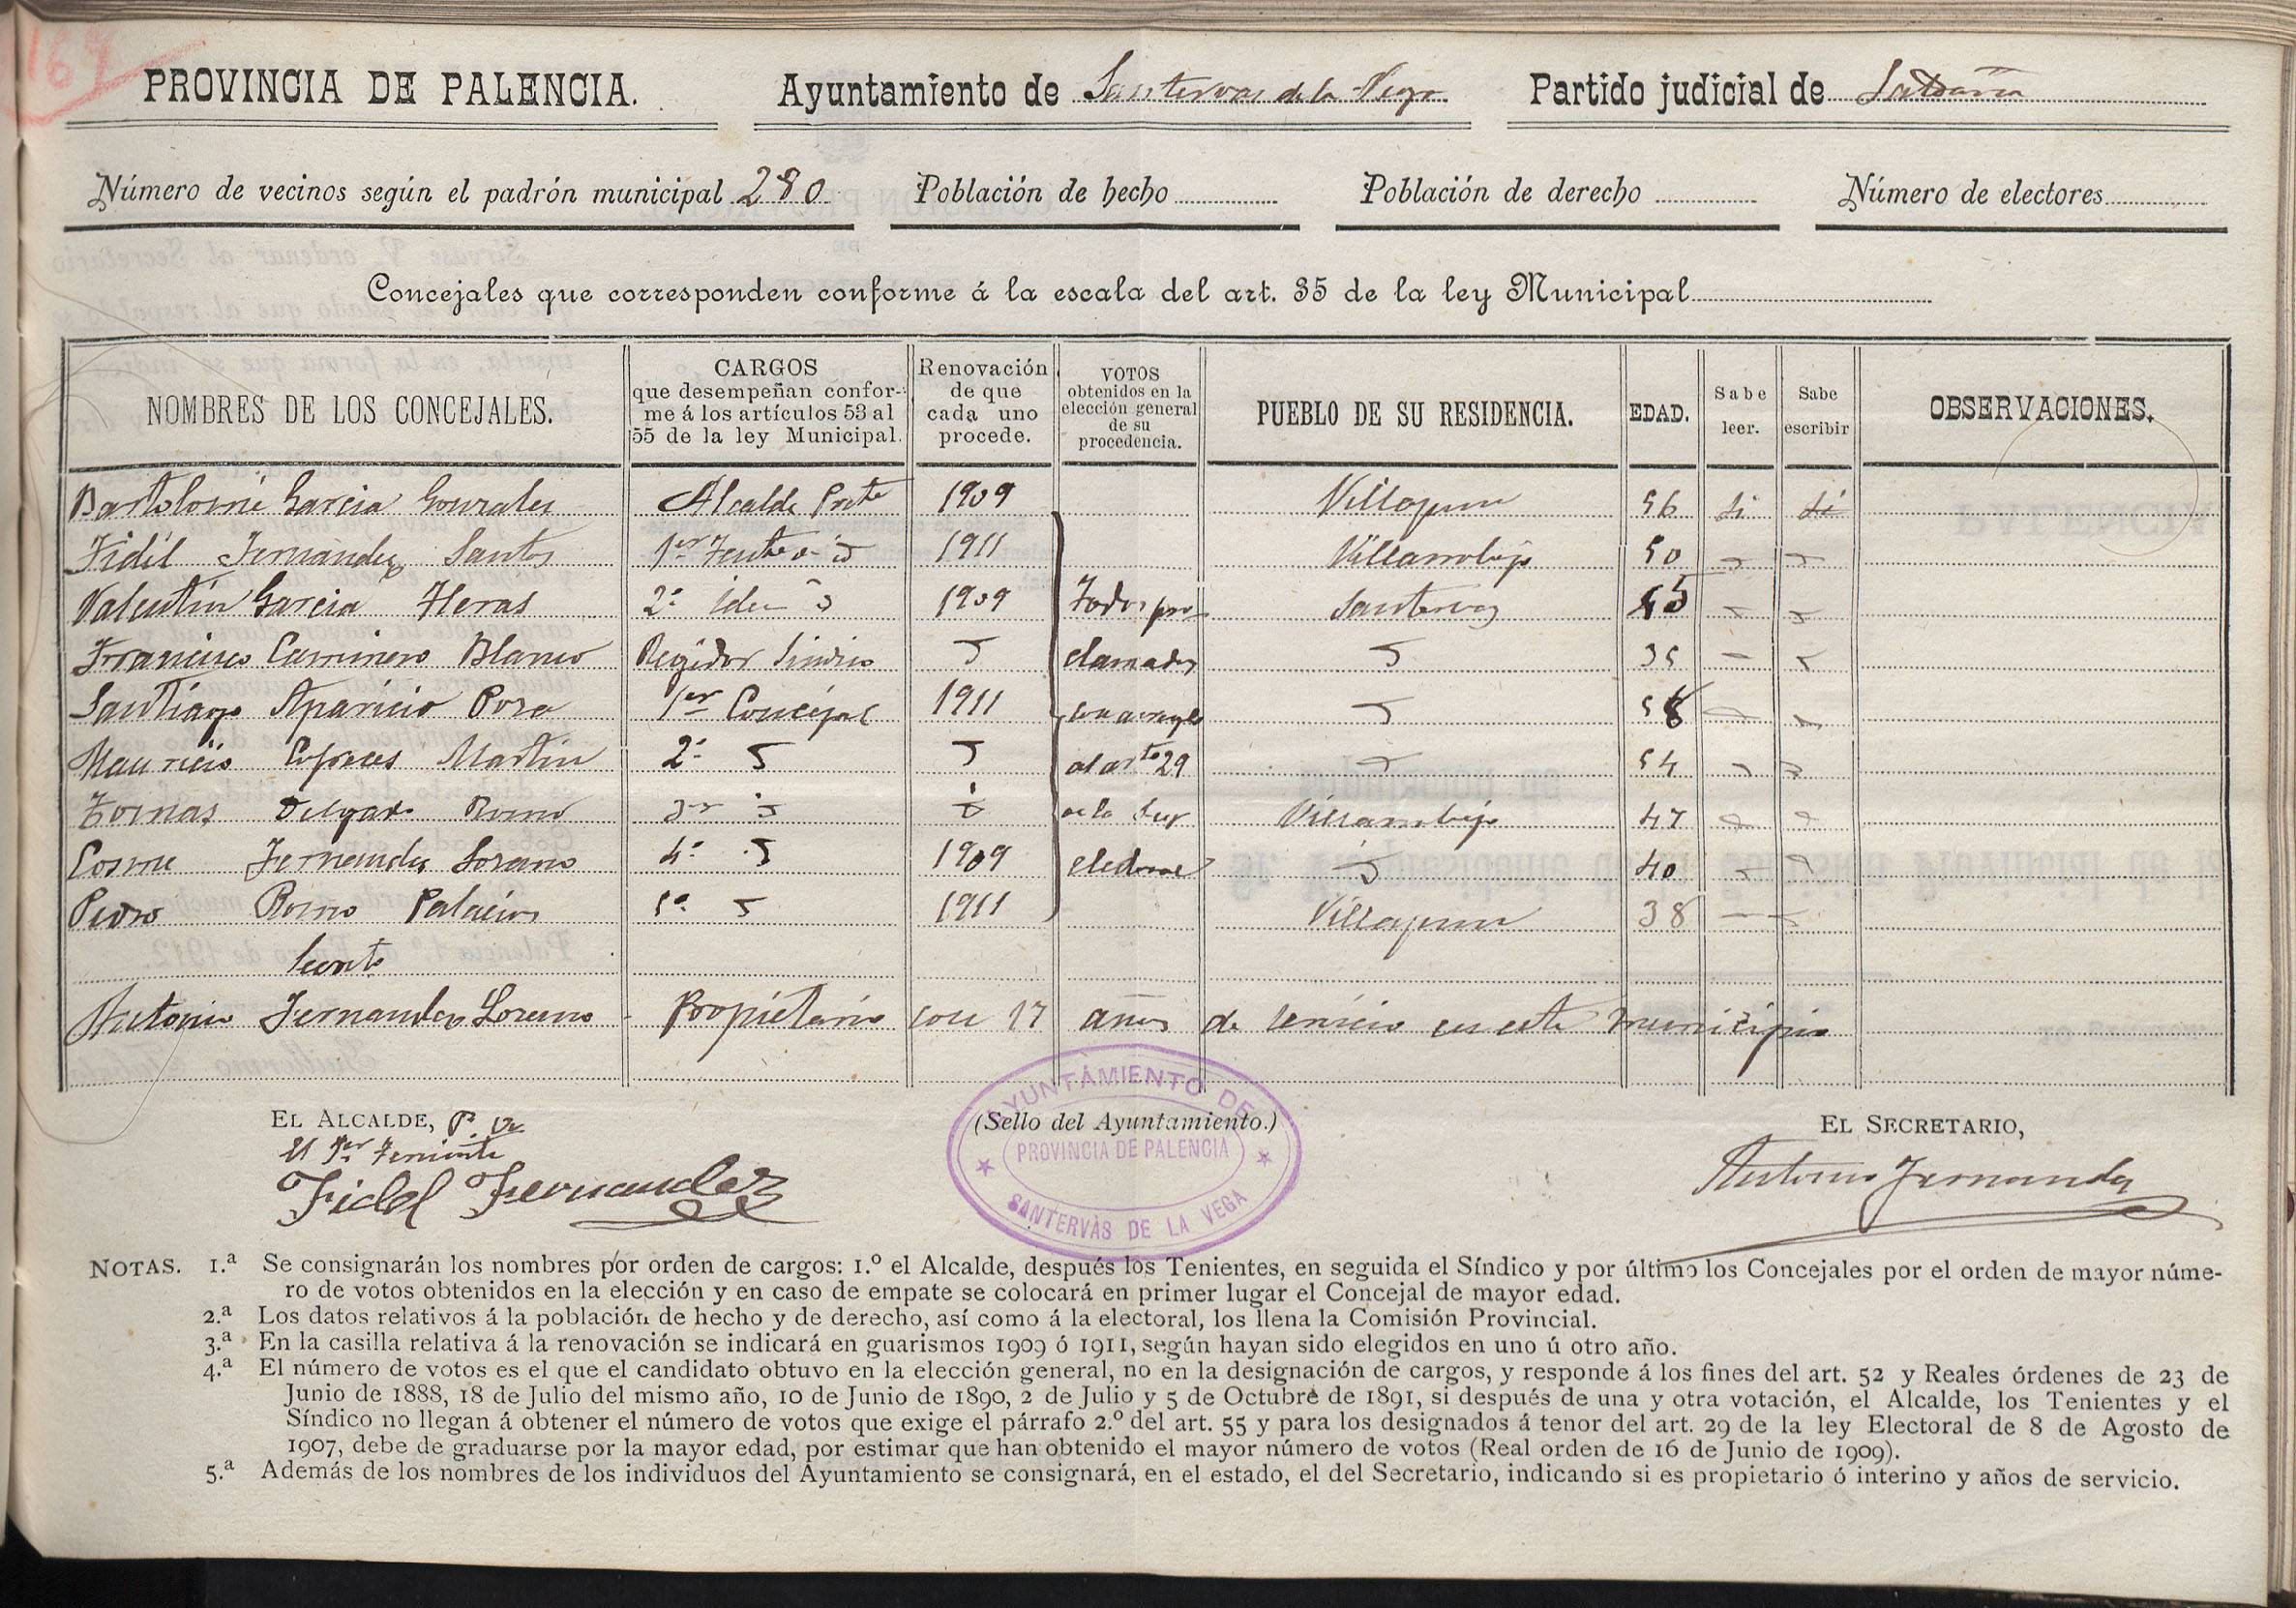 169
PROVINCIA DE PALENCIA. Ayuntamiento de Santervas de la Vega Partido judicial de Saldaña
Número de vecinos según el padrón municipal 280 Población de hecho Población de derecho Número de electores
Concejales que corresponden conforme á la escala del art. 35 de la ley Municipal
NOMBRES DE LOS CONCEJALES. CARGOS que desempeñan confor- me á los artículos 53 al 55 de la ley Municipal. Renovación de que cada uno procede. VOTOS obtenidos en la elección general de su procedencia. PUEBLO DE SU RESIDENCIA. EDAD. Sabe leer. Sabe escribir OBSERVACIONES.
Bartolomé Garcia Gonzalez Alcalde Pnte 1909 Villapun 56 si si
Fidél Fernandez Santos 1er Tente 1911 Villarrobejo 50
Valentin Garcia Heras 2º idem 1909 Todos pro- Santervas 45
Francisco Caminero Blanco Regidor Sindico clamados 35
Santiago Aparicio Poza 1er Concejal 1911 con arreglo 58
Mauricio Martin 2º al arto 29 54
Tomas Delgado Romo 3er de la Ley Villarrobejo 47
Cosme Fernandez Lozano 4º 1909 electoral 40
Pedro Romo Palacios 5º 1911 Villapun 38
Antonio Fernandez Lozano - Propietario con 17 años de servicio en este municipio
EL ALCALDE, P. (Sello del Ayuntamiento.) EL SECRETARIO,
El 1er Teniente
Fidel Fernandez Antonio Fernandez
AYUNTAMIENTO DE
PROVINCIA DE PALENCIA
SANTERVÀS DE LA VEGA
NOTAS. 1.ª Se consignarán los nombres por orden de cargos: 1.º el Alcalde, después los Tenientes, en seguida el Síndico y por último los Concejales por el orden de mayor núme-
ro de votos obtenidos en la elección y en caso de empate se colocará en primer lugar el Concejal de mayor edad.
2.ª Los datos relativos á la población de hecho y de derecho, así como á la electoral, los llena la Comisión Provincial.
3.ª En la casilla relativa á la renovación se indicará en guarismos 1909 ó 1911, según hayan sido elegidos en uno ú otro año.
4.ª El número de votos es el que el candidato obtuvo en la elección general, no en la designación de cargos, y responde á los fines del art. 52 y Reales órdenes de 23 de
Junio de 1888, 18 de Julio del mismo año, 10 de Junio de 1890, 2 de Julio y 5 de Octubre de 1891, si después de una y otra votación, el Alcalde, los Tenientes y el
Síndico no llegan á obtener el número de votos que exige el párrafo 2.º del art. 55 y para los designados á tenor del art. 29 de la ley Electoral de 8 de Agosto de
1907, debe de graduarse por la mayor edad, por estimar que han obtenido el mayor número de votos (Real orden de 16 de Junio de 1909).
5.ª Además de los nombres de los individuos del Ayuntamiento se consignará, en el estado, el del Secretario, indicando si es propietario ó interino y años de servicio.